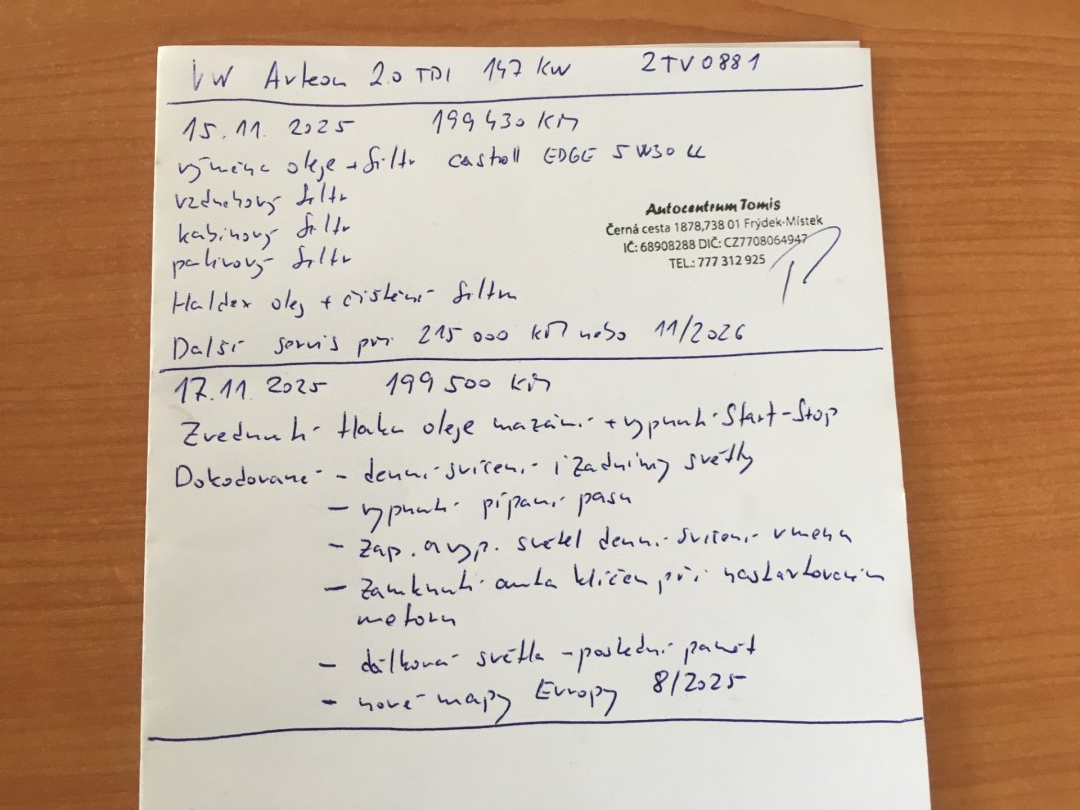 VW Arteon 2.0 TDI 147 KW 2TV0881
15.11. 2025 199 430 KM
výměna oleje + filtr castroll EDGE 5W30 LL
vzduchový filtr
kabinový filtr
palivový filtr
Autocentrum Tomis
Černá cesta 1878,738 01 Frýdek-Místek
IČ: 68908288 DIČ: CZ7708064947
TEL.: 777 312 925
Haldex olej + čištění filtru
Další servis při 215 000 KM nebo 11/2026
17.11. 2025 199 500 KM
Zvednutí tlaku oleje mazání + vypnutí Start-Stop
Dokódované - denní svícení i zadnímy světly
- vypnutí pípaní pasu
- zap. a vyp. světel denní svícení v menu
- Zamknutí auta klíčem při nastartovaném
motoru
- dálková světla - poslední pamět
- nové mapy Evropy 8/2025